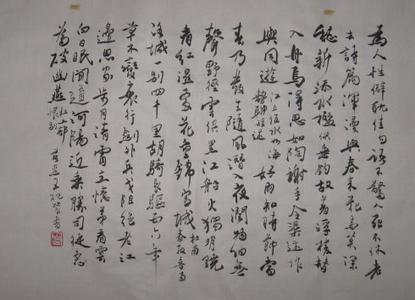 為人性僻耽佳句語不驚人死不休老
去詩篇渾漫與春來花鳥莫深
愁新添水檻供垂釣故著浮槎替
入舟焉得思如陶謝手令渠述作
與同遊
江上值水如海
勢聊短述
好雨知時節當
春乃發生隨風潛入夜潤物細無
聲野徑雲俱黑江船火獨明曉
看紅濕處花重錦官城
杜甫
春夜喜雨
洛城一別四千里胡騎長驅五六年
草木變衰行劍外兵戈阻絕老江
邊思家步月清宵立憶弟看雲
白日眠聞道河陽近乘勝司徒急
為破幽燕
杜工部
恨別